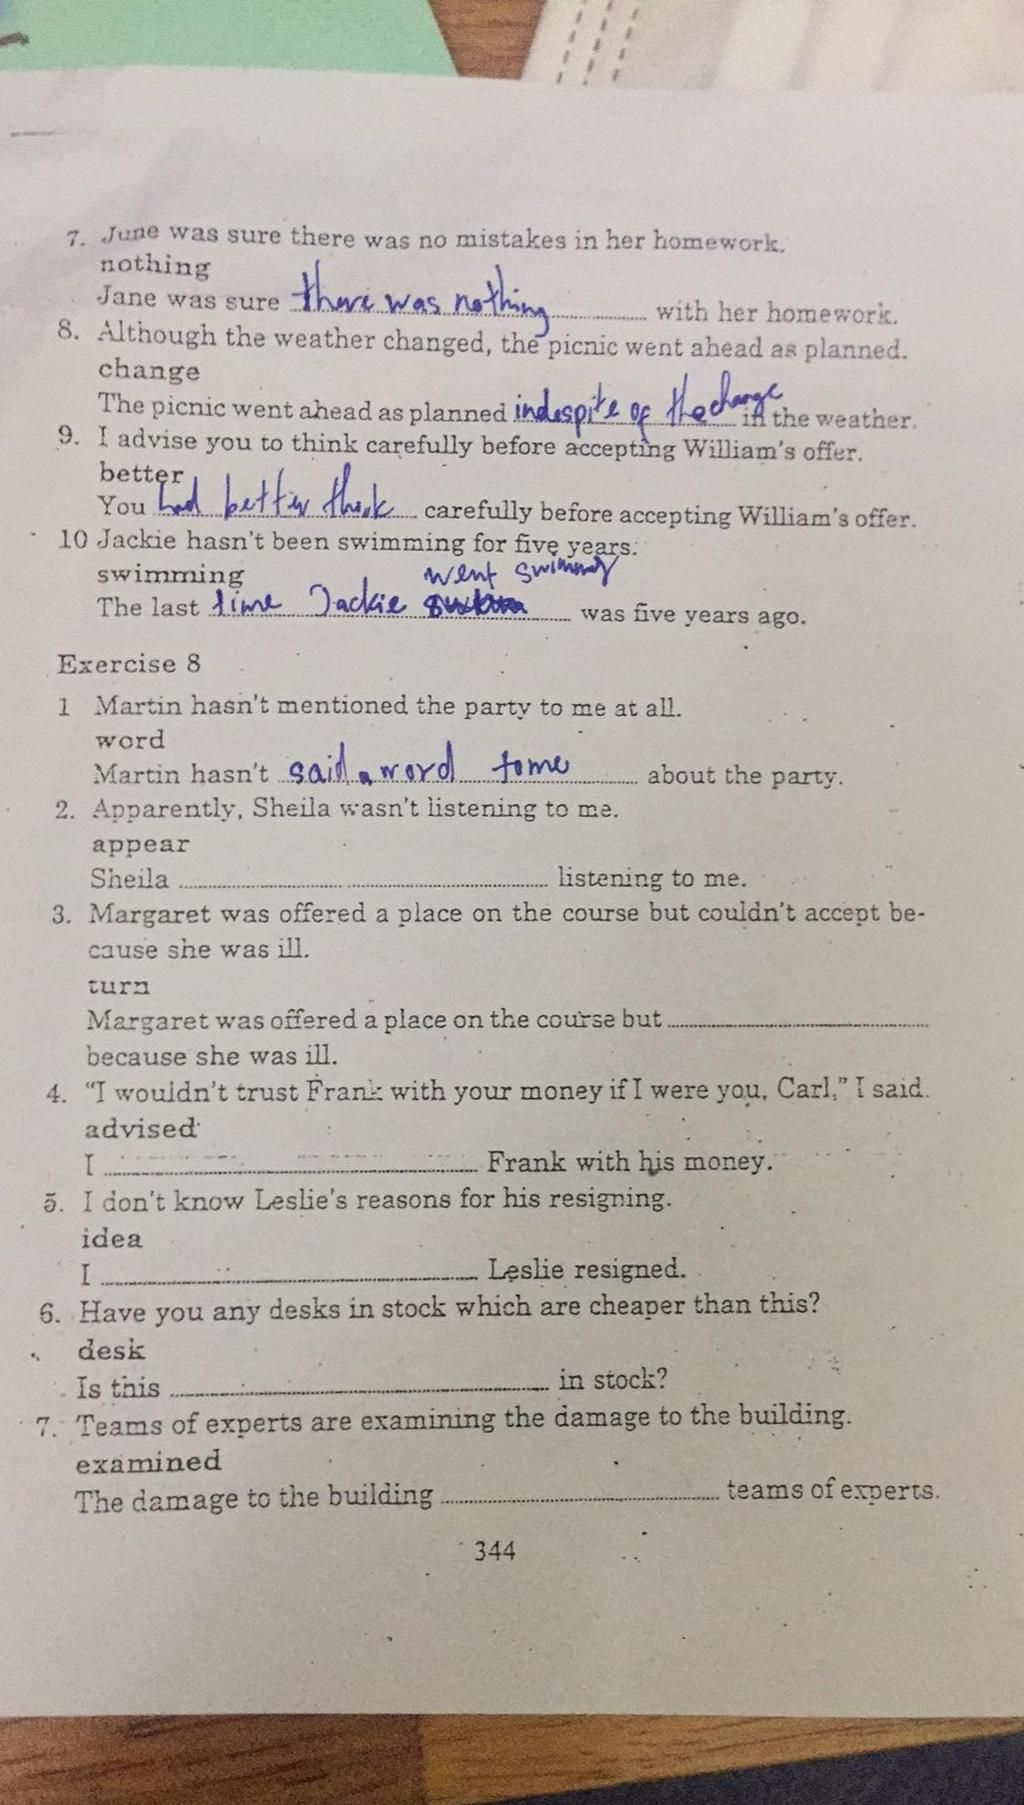 7. June was sure there was no mistakes in her homework.
nothing
Jane was sure there was nothing with her homework.
8. Although the weather changed, the picnic went ahead as planned.
change
The picnic went ahead as planned indespite of the change in the weather.
9. I advise you to think carefully before accepting William's offer.
better
You had better think carefully before accepting William's offer.
10 Jackie hasn't been swimming for five years.
swimming went swimming
The last time Jackie was five years ago.
Exercise 8
1 Martin hasn't mentioned the party to me at all.
word
Martin hasn't said a word to me about the party.
2. Apparently, Sheila wasn't listening to me.
appear
Sheila listening to me.
3. Margaret was offered a place on the course but couldn't accept be-
cause she was ill.
turn
Margaret was offered a place on the course but
because she was ill.
4. "I wouldn't trust Frank with your money if I were you, Carl," I said.
advised
I Frank with his money.
5. I don't know Leslie's reasons for his resigning.
idea
I Leslie resigned.
6. Have you any desks in stock which are cheaper than this?
desk
Is this in stock?
7. Teams of experts are examining the damage to the building.
examined
The damage to the building teams of experts.
344